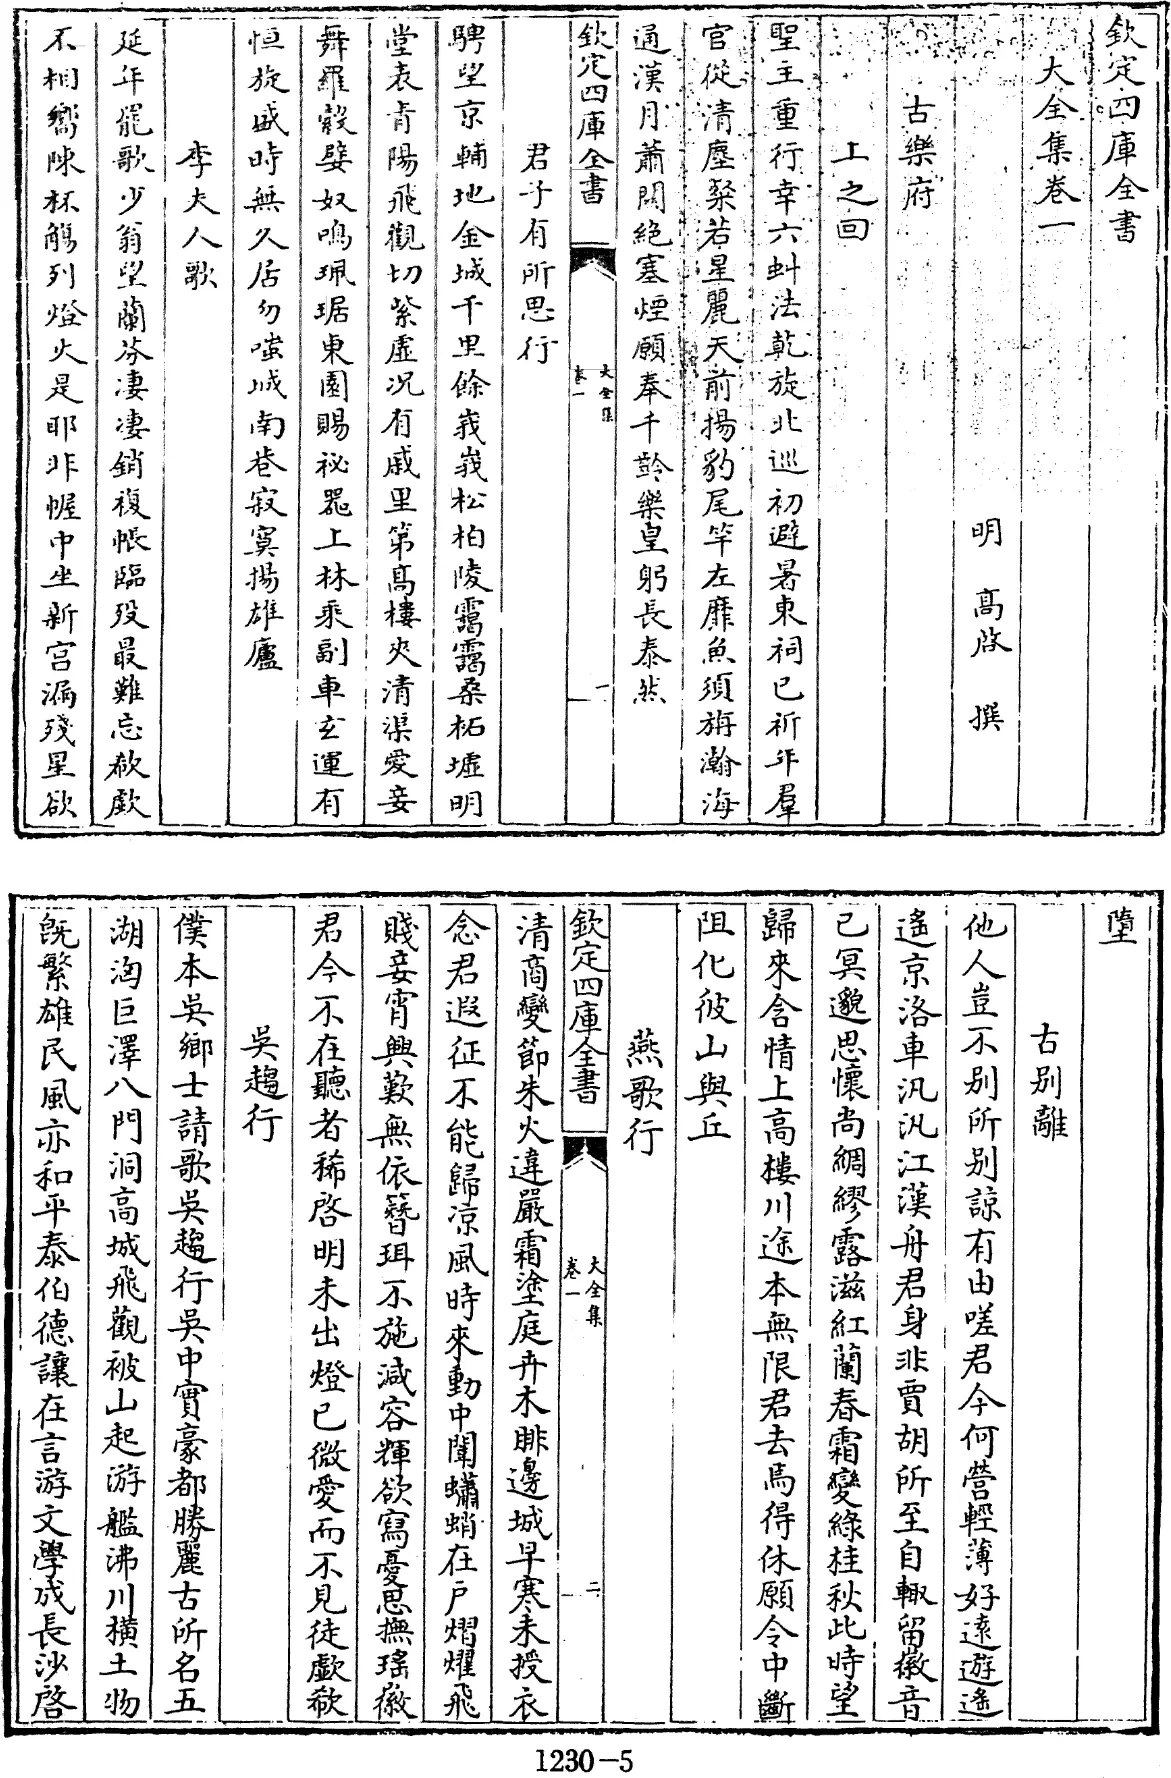 欽定四庫全書
大全集卷一
明 高啟 撰
古樂府
上之回
聖主重行幸六虯法乾旋北巡初避暑東祠已祈年羣
官從清塵粲若星麗天前揚豹尾竿左靡魚須旃瀚海
通漢月蕭關絶塞煙願奉千齡樂皇躬長泰然
欽定四庫全書
大全集
卷一
一
君子有所思行
騁望京輔地金城千里餘峩峩松柏陵靄靄桑柘墟明
堂表青陽飛觀切紫虛况有戚里第髙樓夾清渠愛妾
舞羅縠嬖奴鳴珮琚東園賜祕器上林乘副車玄運有
恒旋盛時無久居勿嗤城南巷寂寞揚雄廬
李夫人歌
延年罷歌少翁望蘭芬凄凄銷複帳臨歿最難忘欷歔
不相嚮陳杯觴列燈火是耶非幄中坐新宫漏殘星欲
墮
古别離
他人豈不别所别諒有由嗟君今何營輕薄好遠遊遙
遙京洛車汎汎江漢舟君身非賈胡所至自輙留徽音
已冥邈思懷尚綢繆露滋紅蘭春霜變綠桂秋此時望
歸來含情上高樓川途本無限君去焉得休願令中斷
阻化彼山與丘
燕歌行
欽定四庫全書
大全集
卷一
二
清商變節朱火違嚴霜塗庭卉木腓邊城早寒未授衣
念君遐征不能歸凉風時來動中闈蠨蛸在戶熠燿飛
賤妾宵興歎無依簪珥不施減容輝欲寫憂思撫瑤徽
君今不在聽者稀啓明未出燈已微愛而不見徒歔欷
吳趨行
僕本吳鄉士請歌吳趨行吳中實豪都勝麗古所名五
湖洶巨澤八門洞高城飛觀被山起游艦沸川横土物
旣繁雄民風亦和平泰伯德讓在言游文學成長沙啓
1230-5